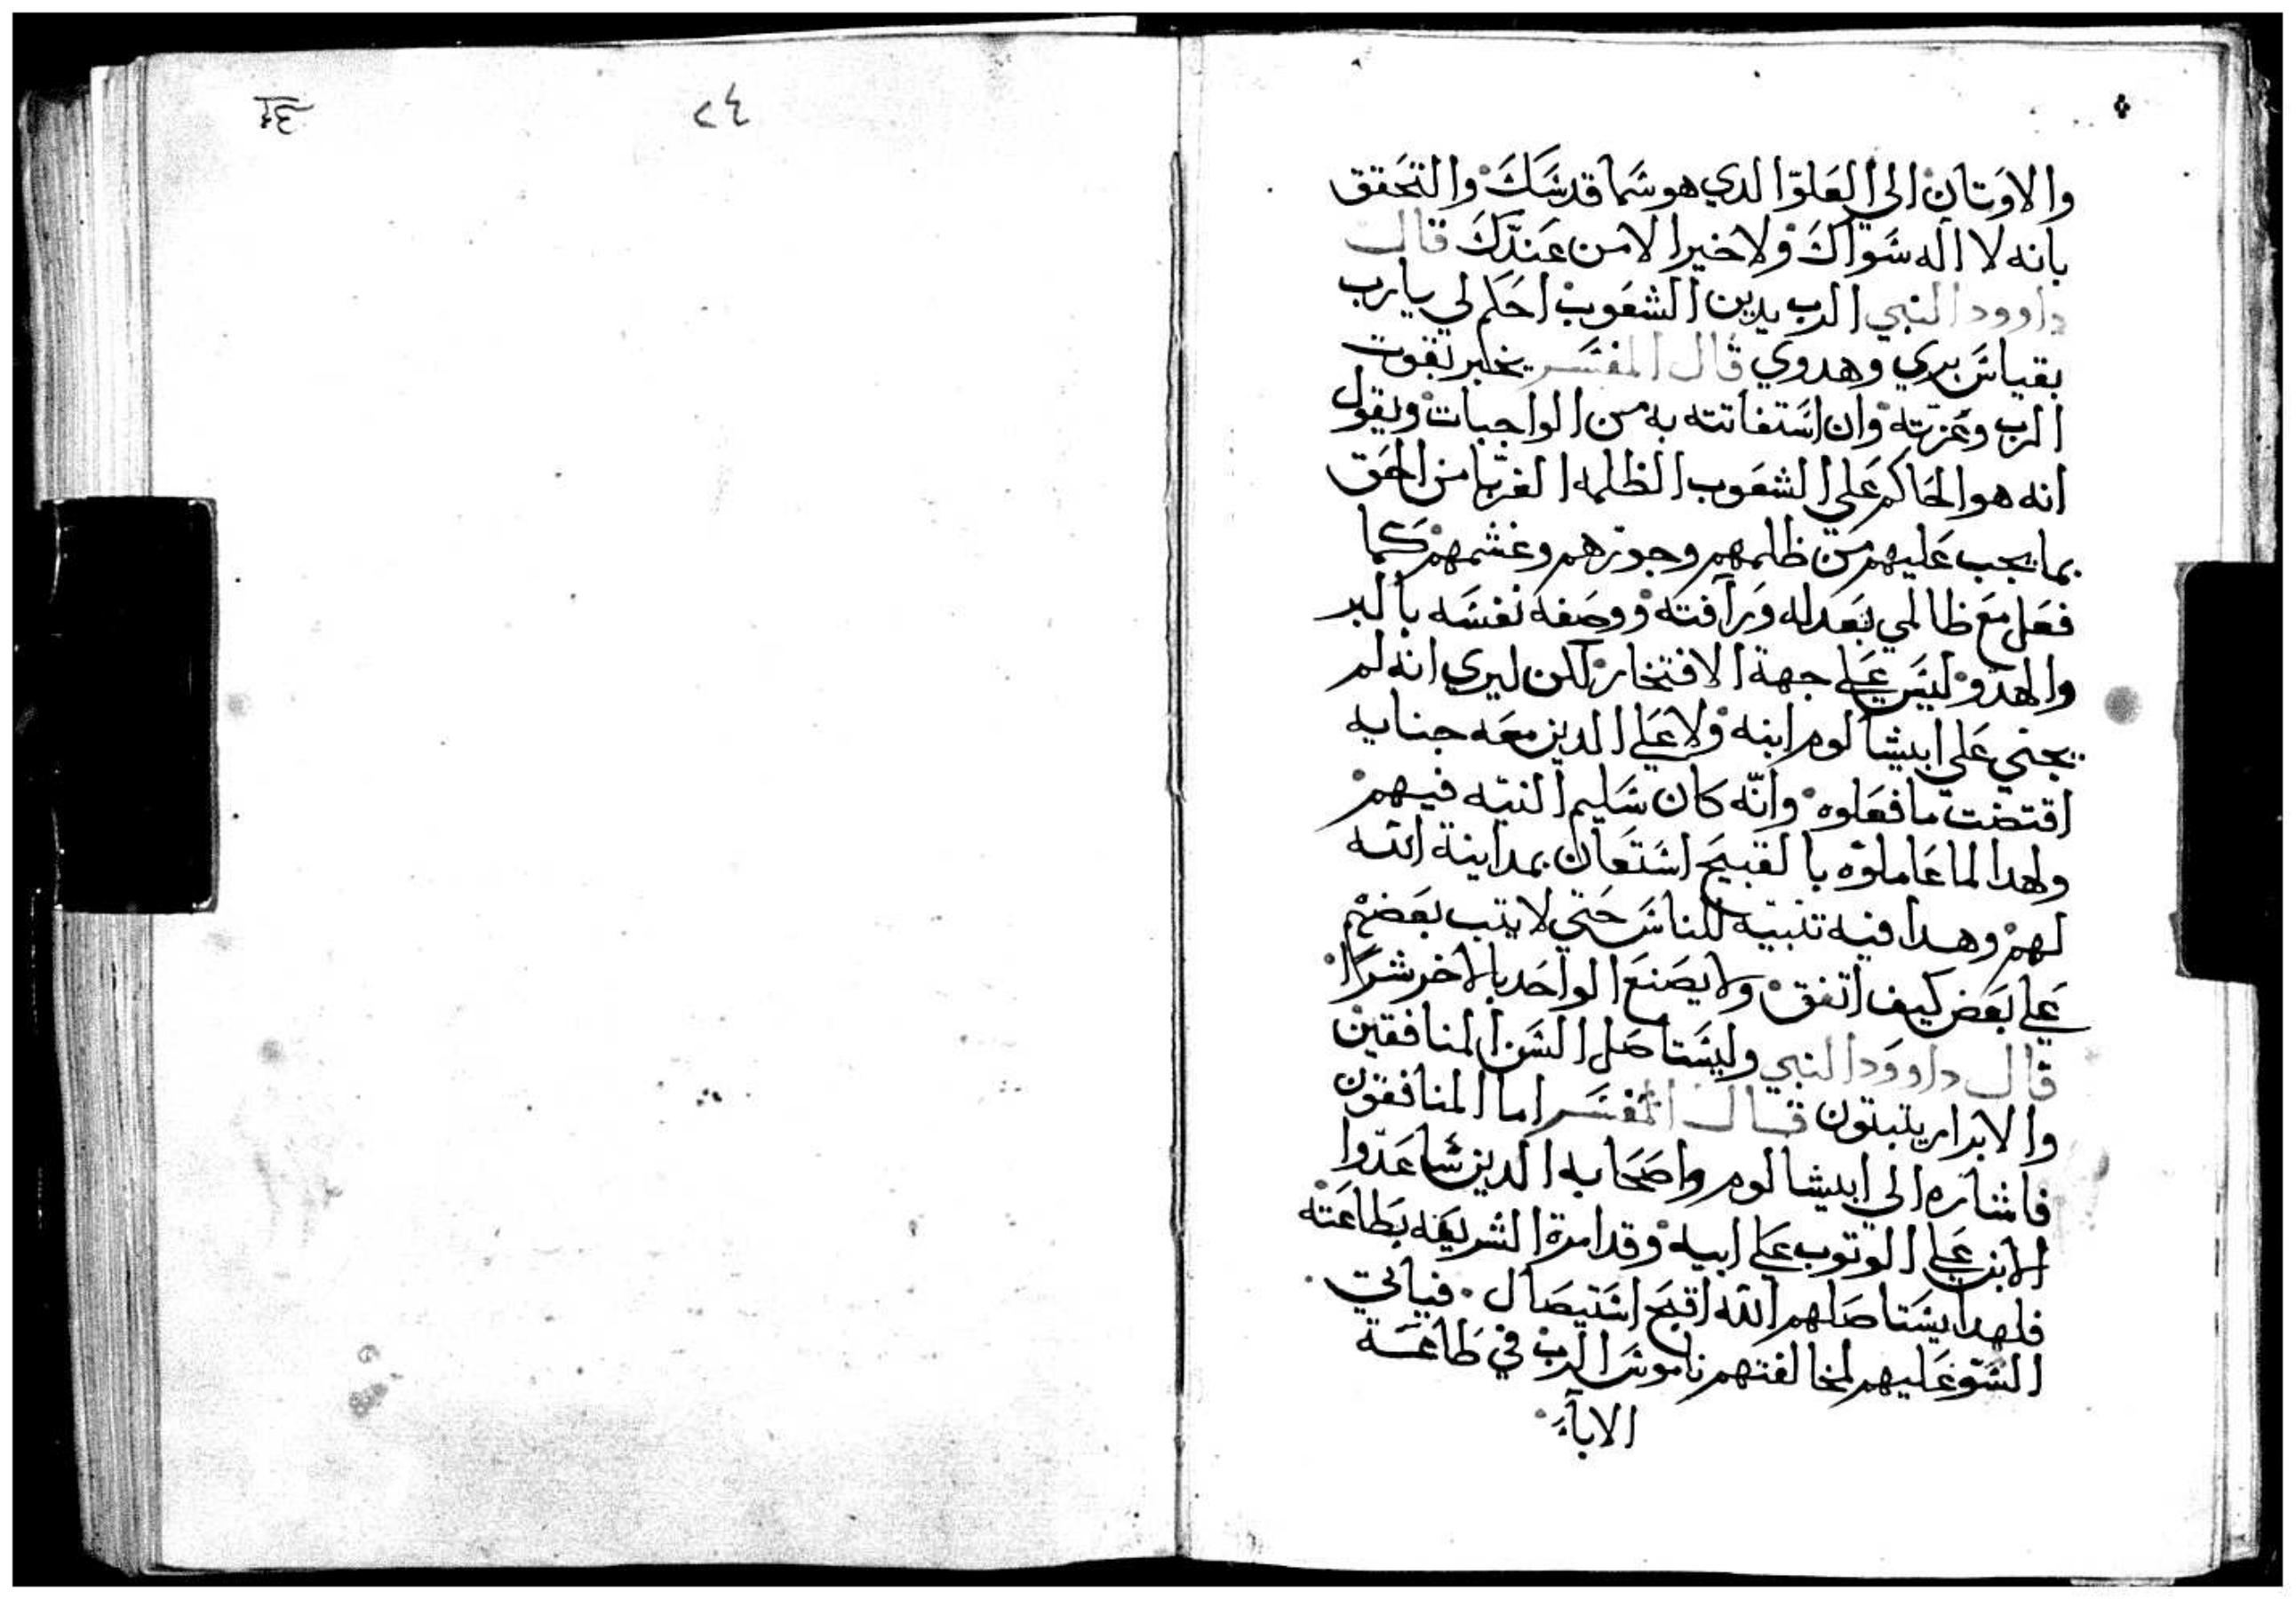 والاوتان الي العلو الدي هو سما قدسك والتحقق
بانه لا اله سواك ولا خير الا من عندك قال
داوود النبي الرب يدين الشعوب احكم لي يارب
بقياس بري وهدوي قال المفسر يخبر بقوت
الرب وعزته وان استغاتته به من الواجبات ويقول
انه هو الحاكم علي الشعوب الظلمه الغربا من الحق
بما يجب عليهم من ظلمهم وجورهم وغشمهم كما
فعل مع ظالمي بعدله ورافته ووصفه نفسه بالبر
والهدو ليس علي جهة الافتخار لكن ليري انه لم
يجني علي ابيشالوم ابنه ولا علي الدين معه جنايه
اقتضت ما فعلوه وانه كان سليم النيه فيهم
ولهدا لما عاملوه بالقبيح استعان بمداينة الله
لهم وهدا فيه تنبيه للناس حتي لا يتب بعضهم
علي بعض كيف اتفق ولا يصنع الواحد بالاخر شرا
قال داوود النبي وليستاصل الشر المنافقين
والابرار يتبتون قال المفسر اما المنافقون
فاشاره الي ابيشالوم واصحابه الدين ساعدوا
الابن علي الوتوب علي ابيه وقد امرة الشريعه بطاعته
فلهدا يستاصلهم الله اقبح استيصال فياتي
السو عليهم لمخالفتهم ناموس الرب في طاعة
الابآء
٢٤